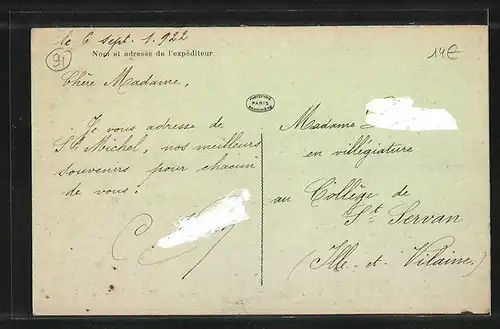 le 6 sept. 1.922
Nom et adresse de l'expéditeur
91
14€
Chère Madame,
Je vous adresse de
St Michel, nos meilleurs
souvenirs pour chacun
de vous!
PARIS
Madame
en villégiature
au Collège de
St Servan
(Ille-et-Vilaine.)